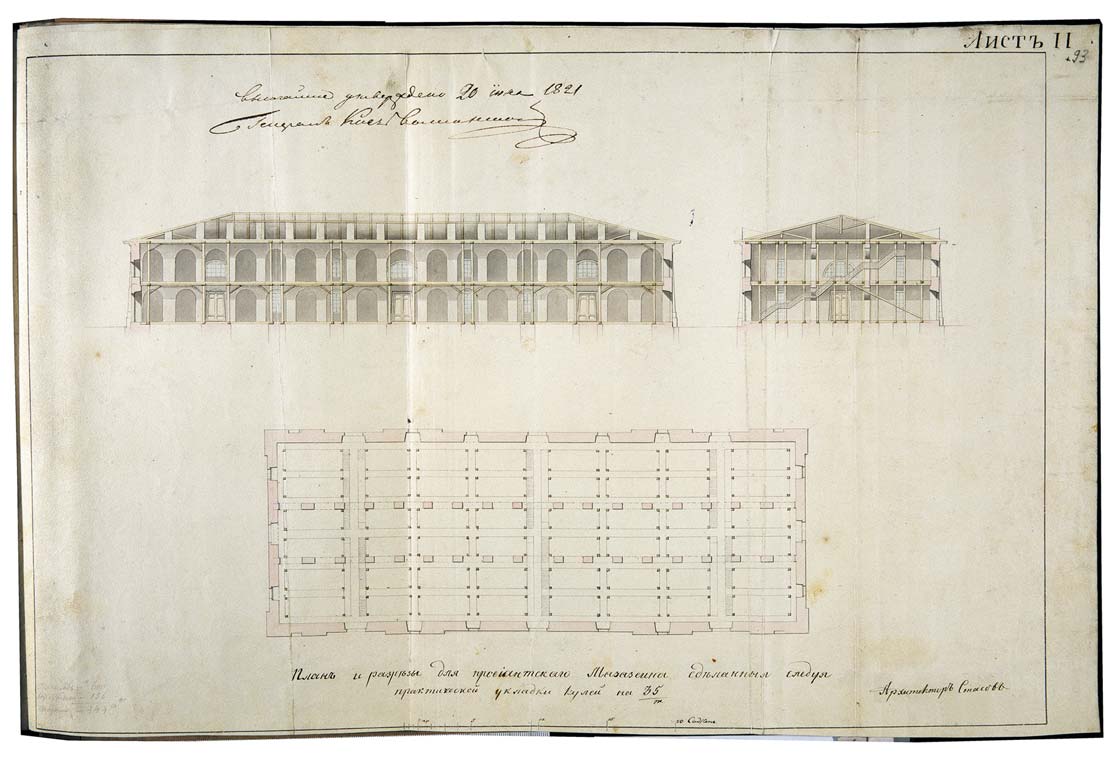 Листъ II
93
высочайше утверждено 20 июня 1821
Генералъ Князь Волконской
Планъ и разрѣзы для провіянтскаго Магазеина сдѣланныя слѣдуя
практической укладки кулей на 35/т
Архитекторъ Стасовъ